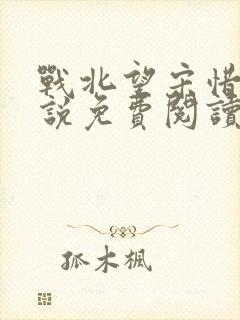 戰北望宋惜
說免費閱讀
孤木楓